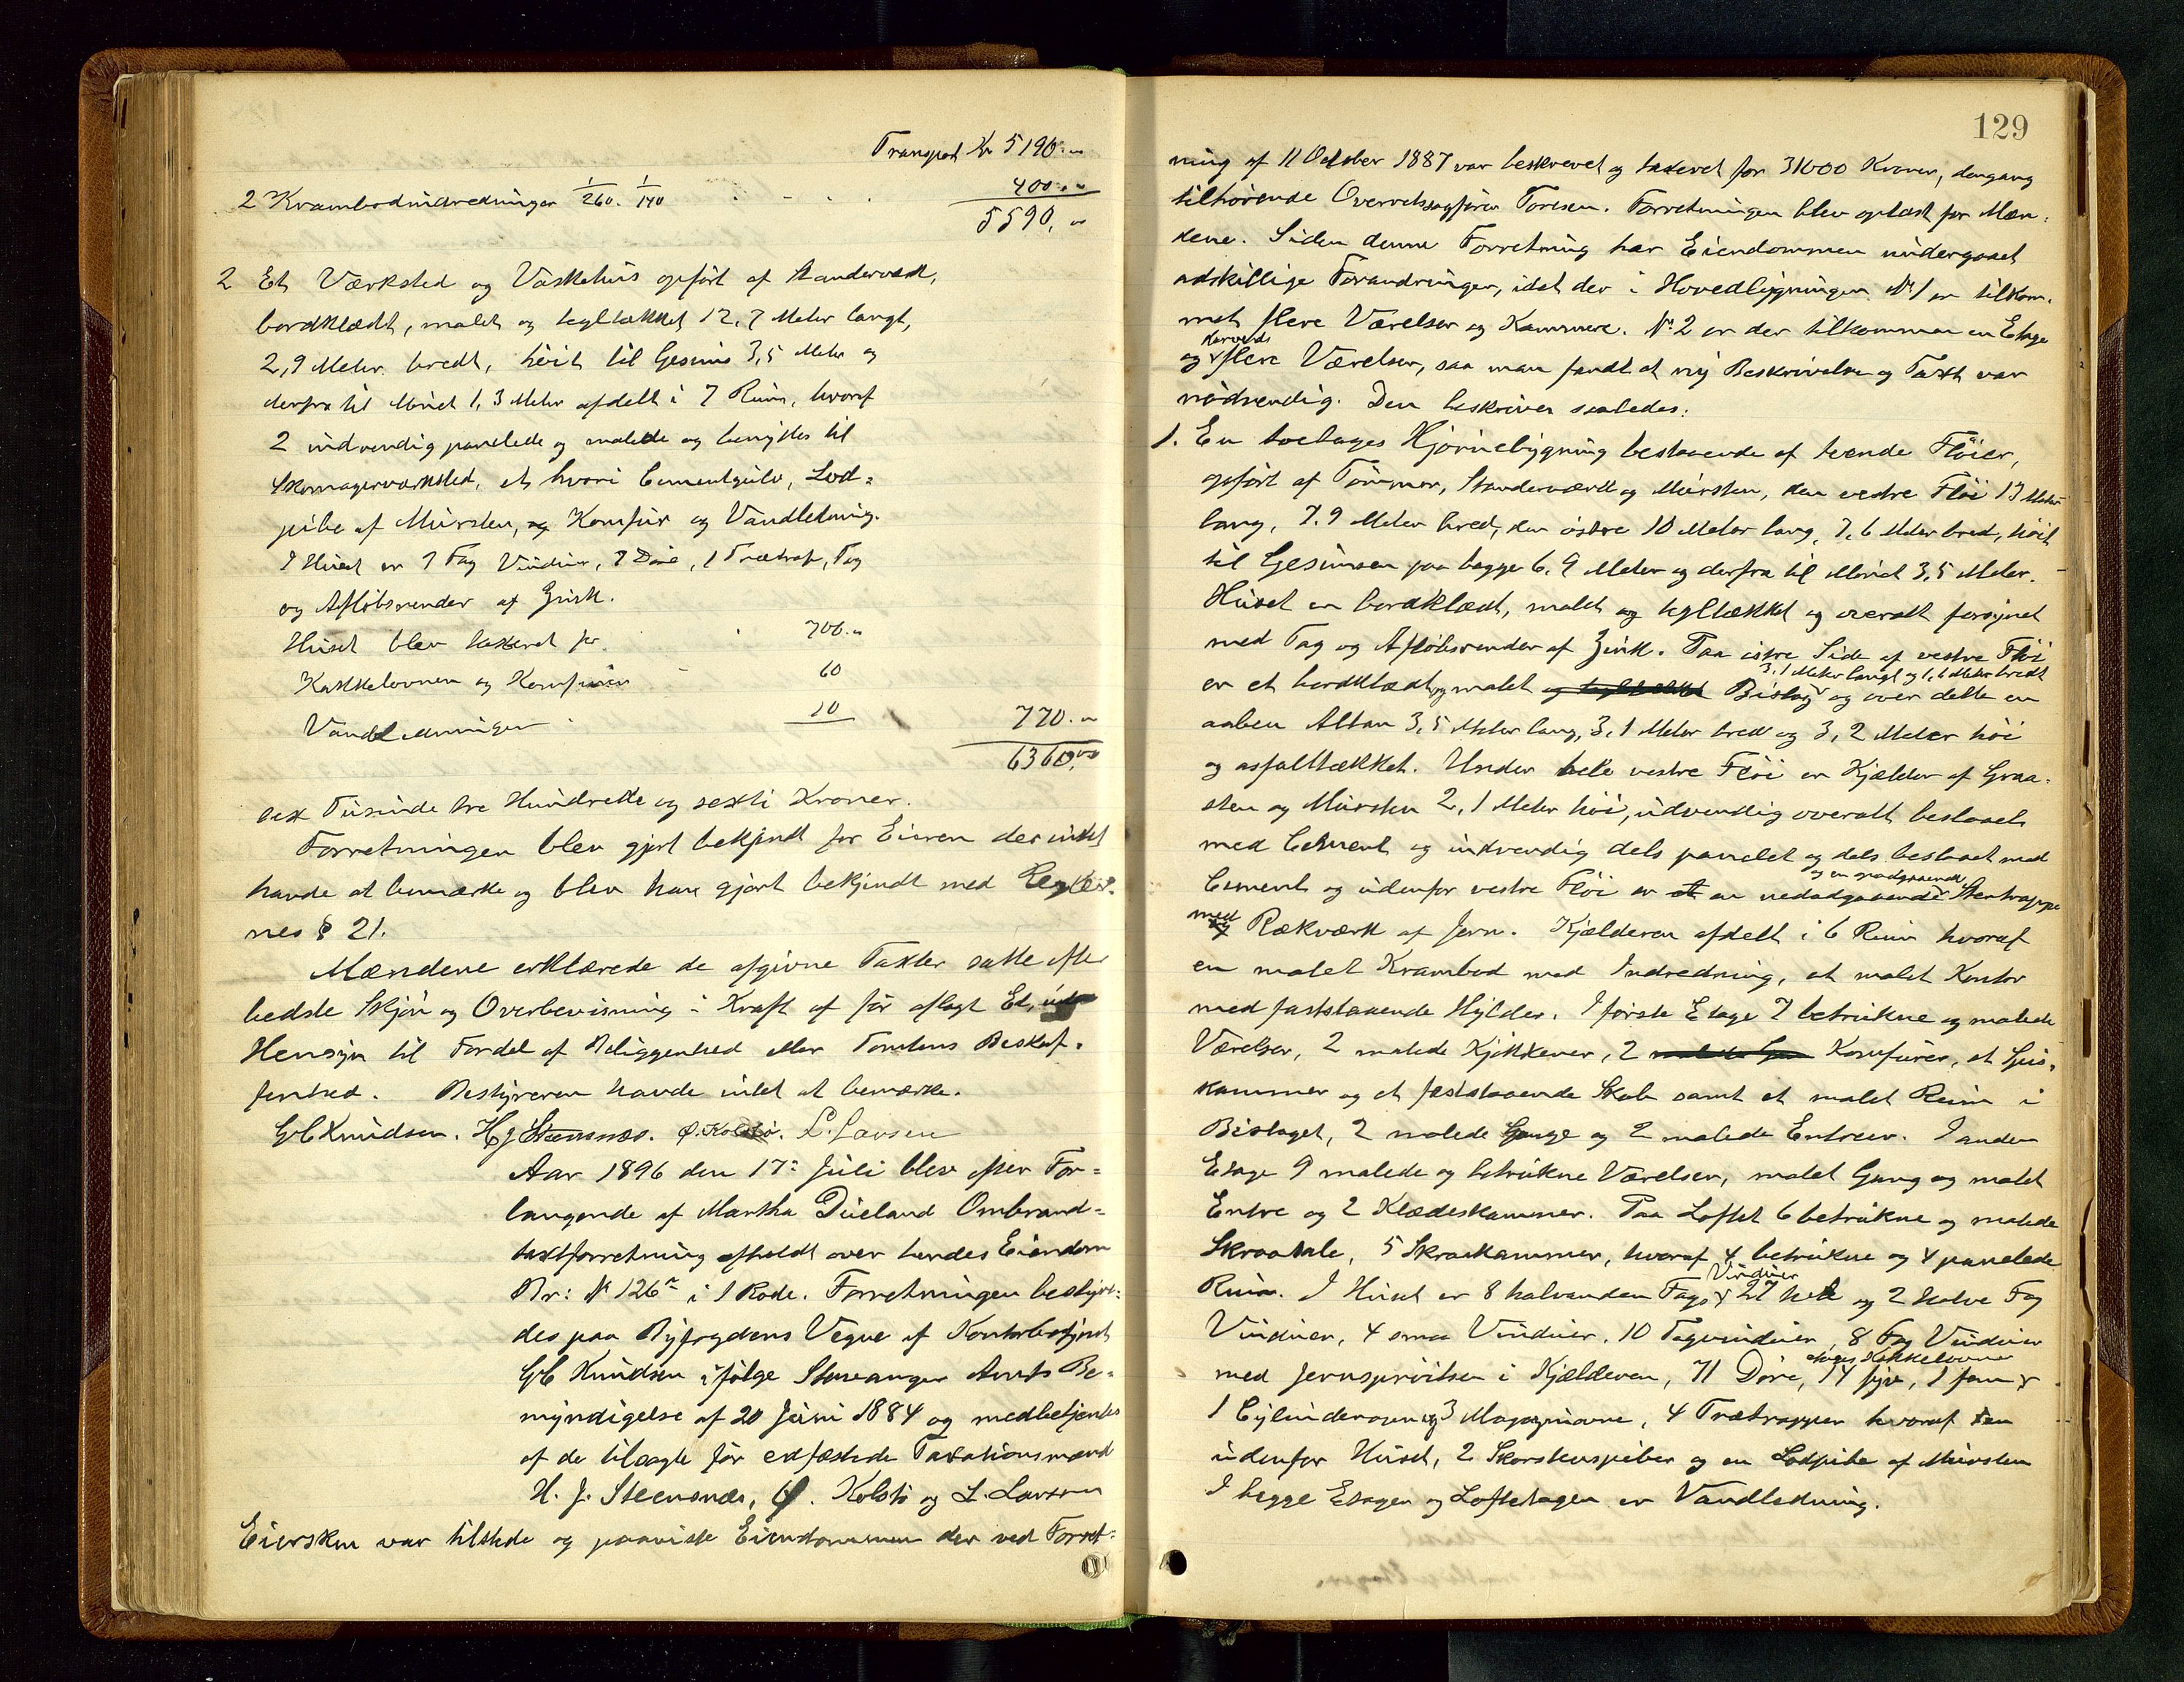 Transport Kr 5190.-
2 Krambodindredninger 1/260. 1/140 400.-
5590,-
2 Et Værksted og Vaskehus opført af Standerværk,
bordklædt, malet og tegltækket 12,7 Meter langt,
2,9 Meter bredt, høit til Gesims 3,5 Meter og
derfra til Mønet 1,3 Meter afdelt i 7 Rum, hvoraf
2 indvendig panelede og malede og benyttes til
Skomagerværksted, et hvori Cementgulv, Lod-
pibe af Mursten, og Komfur og Vandledning.
I Huset er 7 Fag Vinduer, 7 Døre, 1 Trætrap, Tag
og Afløbsrender af Zink.
Huset blev taxeret for 700.-
Kakkelovnen og Komfuren 60
Vandledningen 10 770.-
6360,00
sex Tusinde tre Hundrede og sexti Kroner.
Forretningen blev gjort bekjendt for Eieren der intet
havde at bemærke og blev han gjort bekjendt med Regler-
nes § 21.
Mændene erklærede de afgivne Taxter satte efter
bedste Skjøn og Overbevisning i Kraft af før aflagt Ed, uden
Hensyn til Fordel af Beliggenhed eller Tomtens Beskaf-
fenhed. Bestyreren havde intet at bemærke.
G C Knudsen. H J Steensnæs. Ø. Kolstø. L. Larsen
Aar 1896 den 17de Juli blev efter For-
langende af Martha Dueland Ombrand-
taxtforretning afholdt over hendes Eiendom
Br: No 126a i 1 Rode. Forretningen bestyre-
des paa Byfogdens Vegne af Kontorbetjent
G C Knudsen ifølge Stavanger Amts Be-
myndigelse af 20 Juni 1884 og medbetjentes
af de tilsagte før edfæstede Taxationsmænd
H. J. Steensnæs, Ø. Kolstø og L. Larsen
Eiersken var tilstede og paaviste Eiendommen der ved Forret-
129
ning af 11 October 1887 var beskrevet og taxeret for 31000 Kroner, dengang
tilhørende Overretssagfører Toresen. Forretningen blev oplæst for Mæn-
dene. Siden denne Forretning har Eiendommen undergaaet
adskillige Forandringer, idet der i Hovedbygningen No 1 er tilkom-
met flere Værelser og Kammere. No 2 er der tilkommen en Etage
og flere Værelser, saa man fandt at ny Beskrivelse og Taxt var
nødvendig. Den beskrives saaledes:
1. En toetages Hjørnebygning bestaaende af tvende Fløier,
opført af Tømmer, Standerværk og Mursten, den vestre Fløi 13 Meter
lang, 7.9 Meter bred, den østre 10 Meter lang, 7,6 Meter bred, høit
til Gesimsen paa begge 6,9 Meter og derfra til Mønet 3,5 Meter.
Huset er bordklædt, malet og tegltækket og overalt forsynet
med Tag og Afløbsrender af Zink. Paa østre Side af vestre Fløi
3,1 Meter langt og 1,1 Meter bredt
er et bordklædt og malet og tegltækket Bislag og over dette en
aaben Altan 3,5 Meter lang, 3,1 Meter bred og 3,2 Meter høi
og asfalttækket. Under hele vestre Fløi er Kjælder af Graa-
sten og Mursten 2,1 Meter høi, udvendig overalt beslaaet
med Cement og indvendig dels panelet og dels beslaaet med
og en opadgaaende
Cement og udenfor vestre Fløi er en nedadgaaende Stentrappe
med Rækværk af Jern. Kjælderen afdelt i 6 Rum hvoraf
en malet Krambod med Indredning, et malet Kontor
med faststaaende Hylder. I første Etage 7 betrukne og malede
Værelser, 2 malede Kjøkkener, 2 Komfurer, et Spis-
kammer og et faststaaende Skab samt et malet Rum i
Bislaget, 2 malede Gange og 2 malede Entreer. I anden
Etage 9 malede og betrukne Værelser, malet Gang og malet
Entre og 2 Klædeskammer. Paa Loftet 6 betrukne og malede
Skraatale, 5 Skraakammer, hvoraf 4 betrukne og 4 panelede
Vinduer
Rum. I Huset er 8 halvanden Fags 27 hele og 2 halve Fag
Vinduer, 4 smaa Vinduer, 10 Tagvinduer, 8 Fag Vinduer
etages Kakkelovne
med Jernsprinkler i Kjælderen, 71 Døre, 14 fyr, 1 fem
1 Cylinderovn og 3 Magazinovne, 4 Trætrapper hvoraf en
udenfor Huset, 2 Skorstenspiber og en Lodpibe af Mursten
I begge Etagen og Loftetagen er Vandledning.